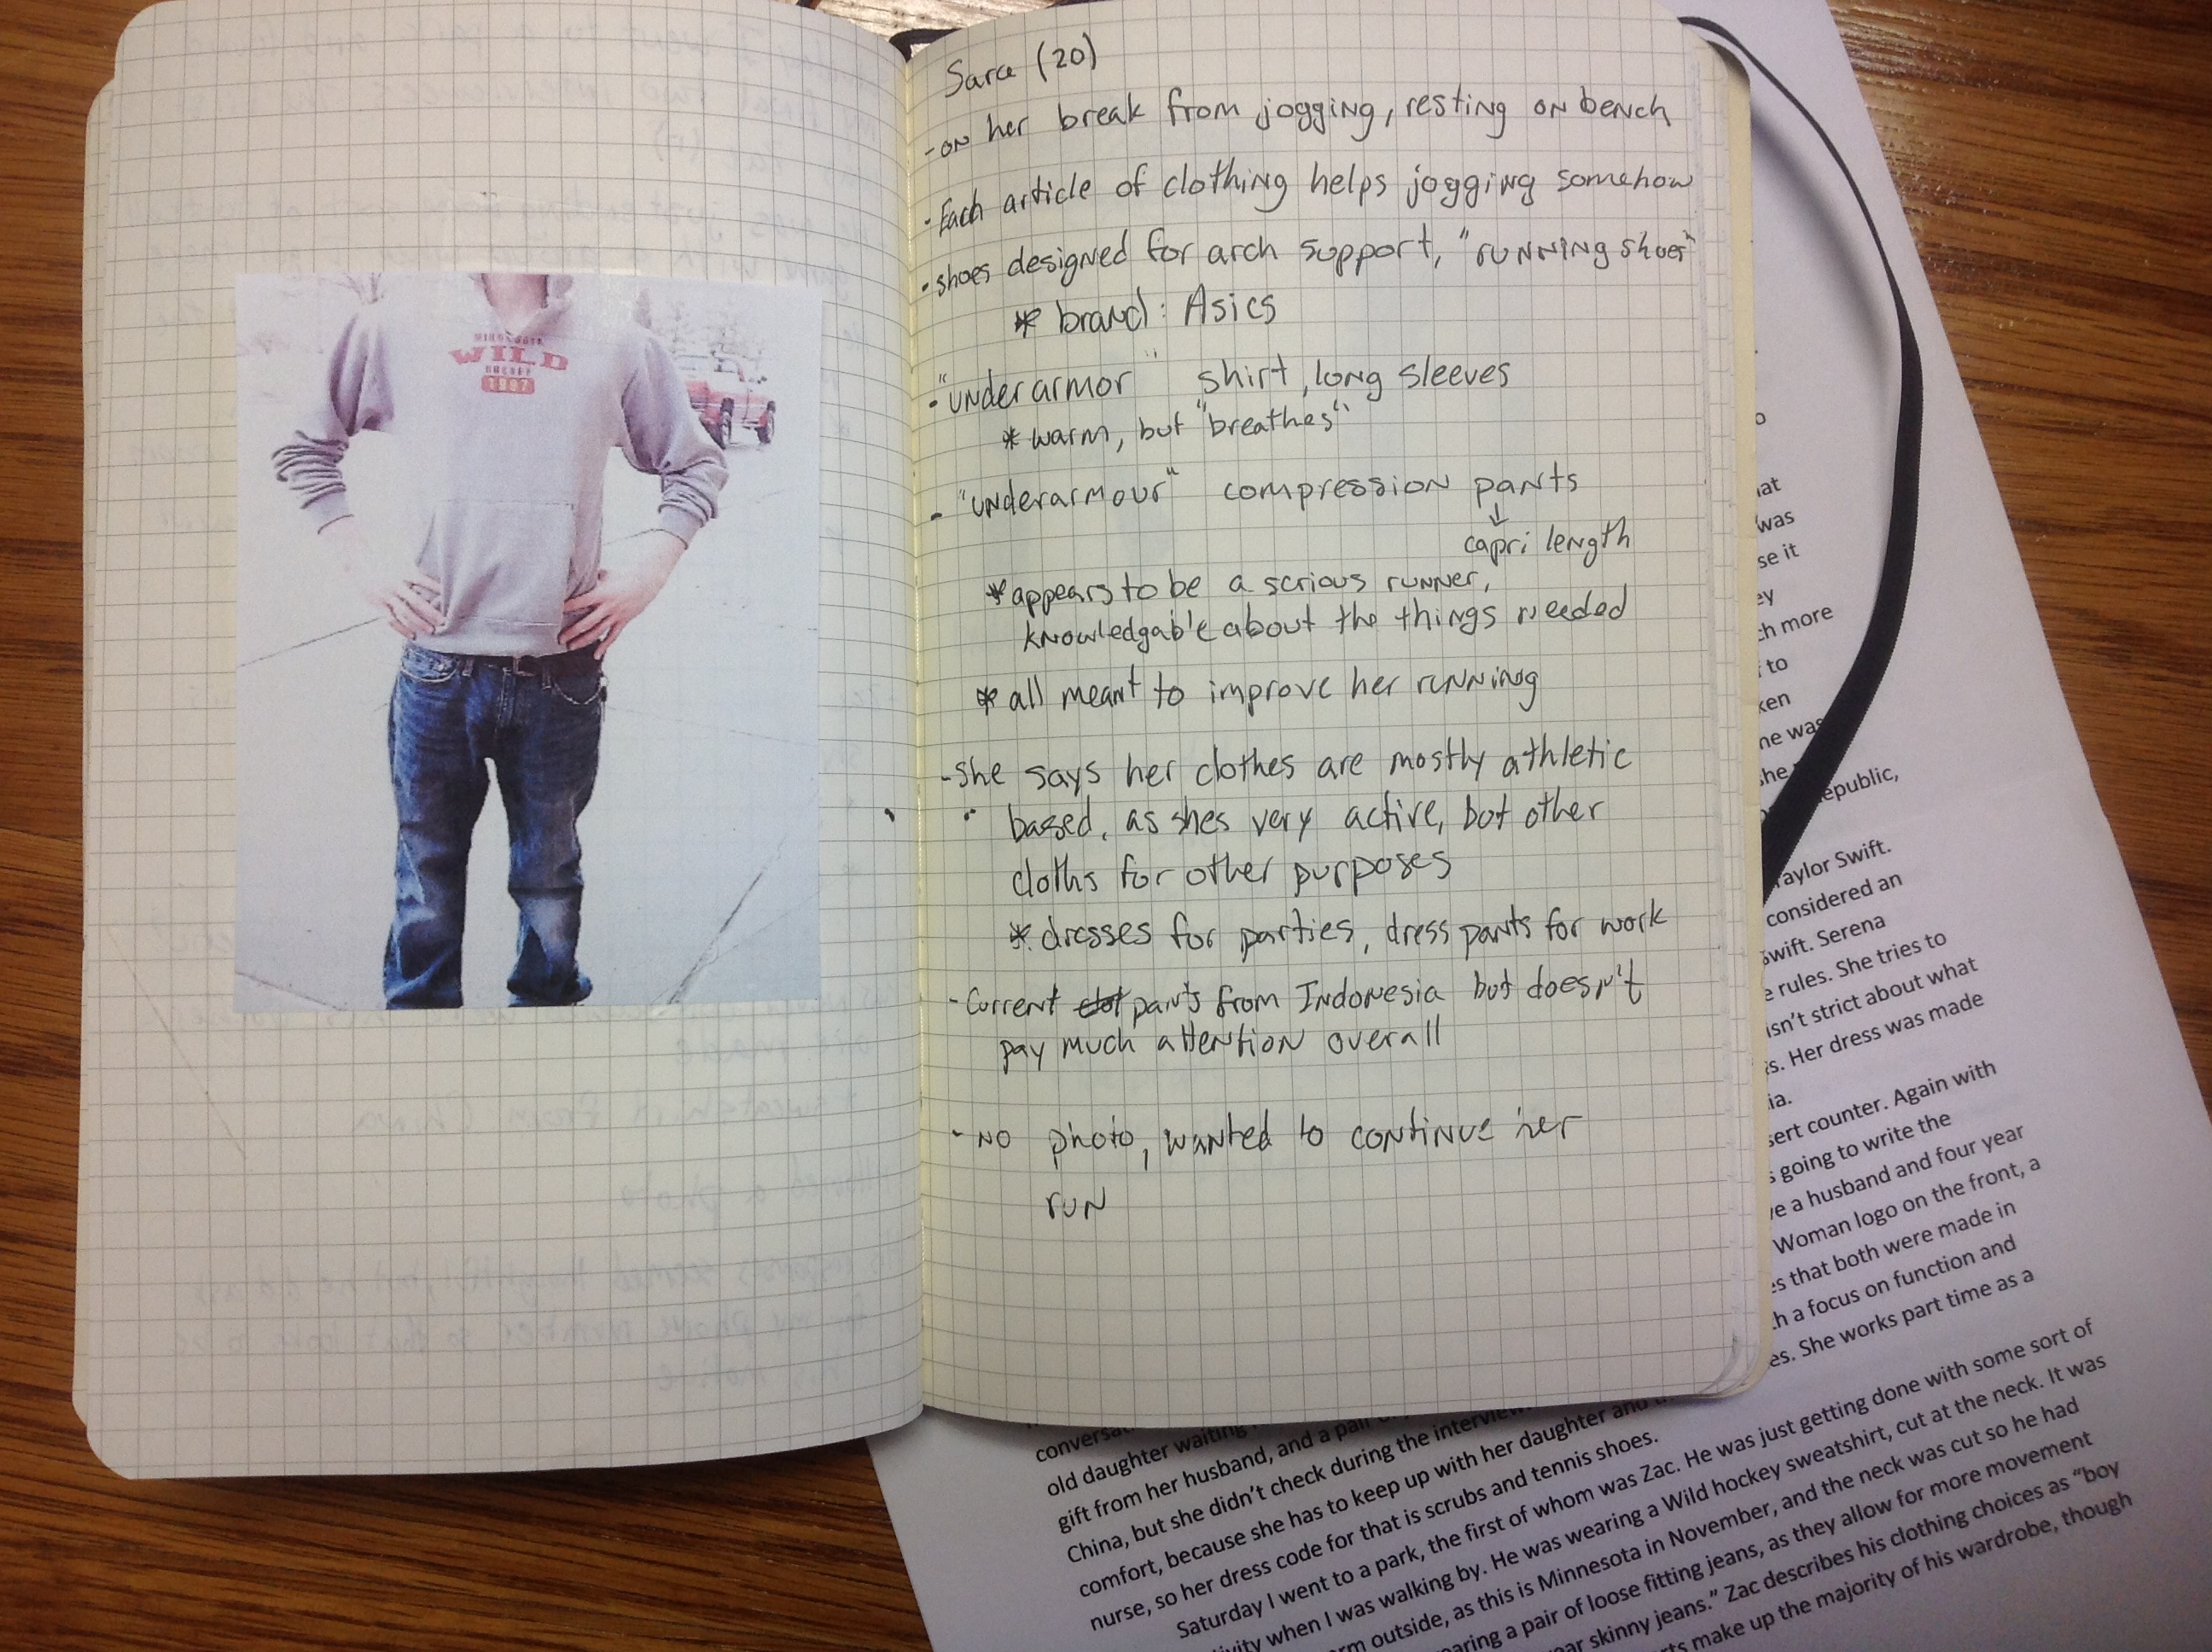 Sara (20)
- on her break from jogging, resting on bench
- Each article of clothing helps jogging somehow
- shoes designed for arch support, "running shoes"
* brand: Asics
- "underarmor" shirt, long sleeves
* warm, but "breathes"
- "underarmour" compression pants
↓
capri length
* appears to be a serious runner,
knowledgable about the things needed
* all meant to improve her running
- She says her clothes are mostly athletic
based, as shes very active, but other
cloths for other purposes
* dresses for parties, dress pants for work
- Current clot pants from Indonesia but doesn't
pay much attention overall
- No photo, wanted to continue her
run
WILD
HOCKEY
1997
was
se it
ch more
to
ken
he was
epublic,
Taylor Swift.
considered an
Swift. Serena
e rules. She tries to
isn't strict about what
s. Her dress was made
ia.
sert counter. Again with
going to write the
e a husband and four year
Woman logo on the front, a
es that both were made in
h a focus on function and
es. She works part time as a
conversat
old daughter waiting
gift from her husband, and a pair
China, but she didn't check during the interview
comfort, because she has to keep up with her daughter and
nurse, so her dress code for that is scrubs and tennis shoes.
Saturday I went to a park, the first of whom was Zac. He was just getting done with some sort of
tivity when I was walking by. He was wearing a Wild hockey sweatshirt, cut at the neck. It was
rm outside, as this is Minnesota in November, and the neck was cut so he had
earing a pair of loose fitting jeans, as they allow for more movement
ear skinny jeans." Zac describes his clothing choices as "boy
rts make up the majority of his wardrobe, though